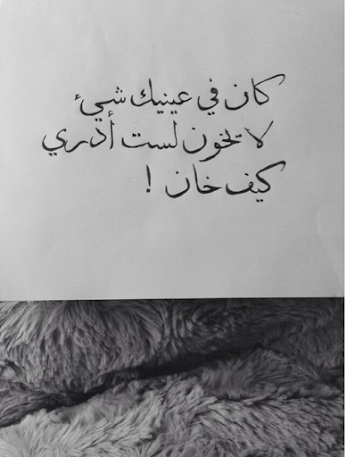 كان في عينيك شيء
لا يخون لست أدري
كيف خان !